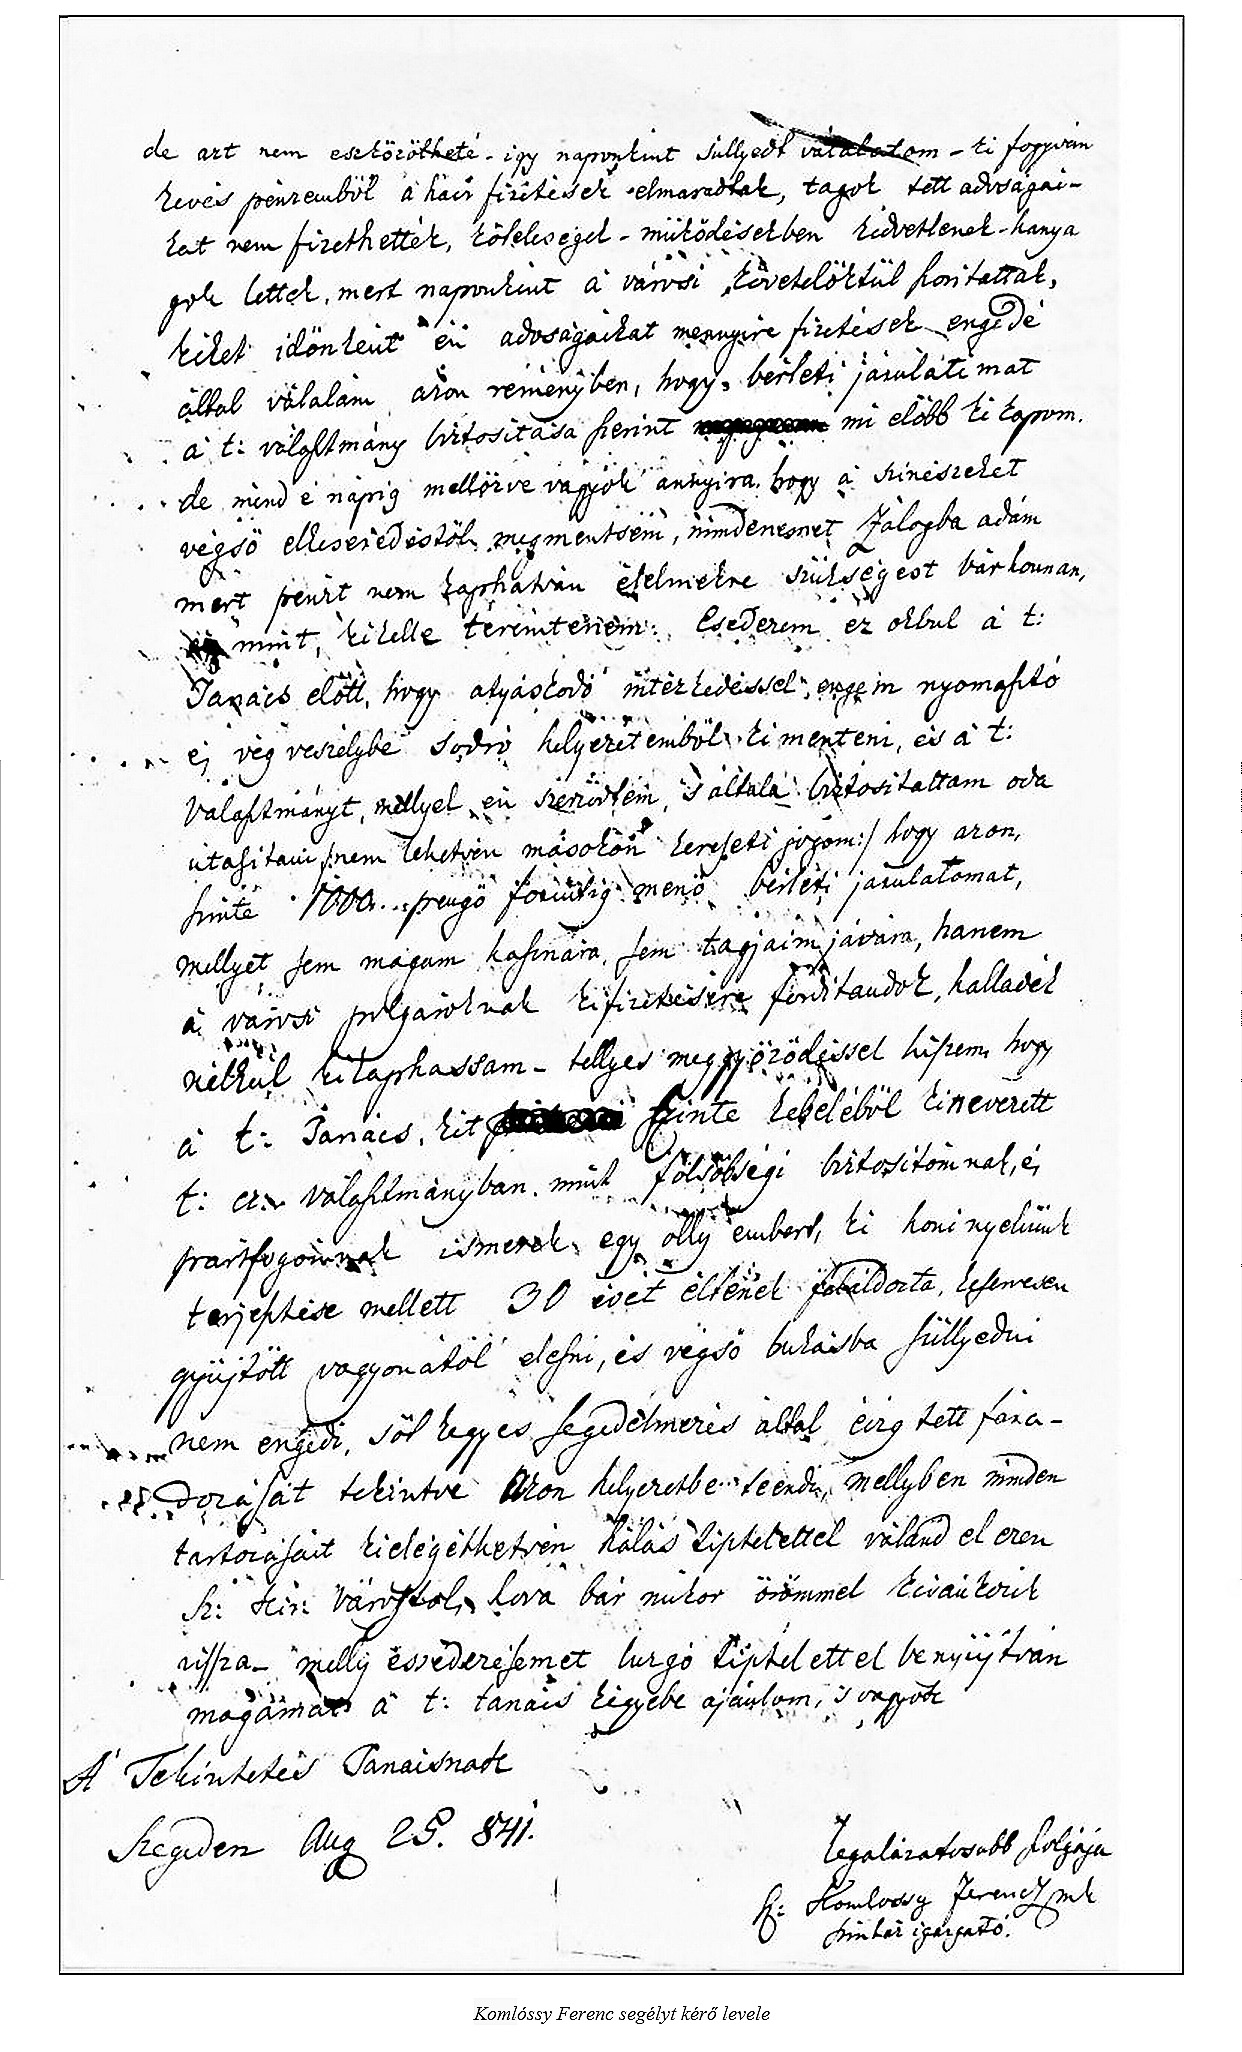 de azt nem eszközölheté - igy naponkint süllyedt válalatom - ki fogyván
kevés pénzemből a ház fizetések elmaradtak, tagok tett adosságai-
kat nem fizethették, kötelességek - müködésekben kedvetlenek - hanya
gok lettek, mert naponkint á városi követelöktül szorittattak,
kiket idönként én adosságaikat mennyire fizetések engedé
által válalám azon reményben, hogy bérleti járulátimat
á t: választmány biztositása szerint mi elöbb ki kapom.
de mind é napig mellözve vagyok annyira hogy á szinészeket
végsö elkeseredéstöl megmentsem, mindenemet zálogba adám
mert pénzt nem kaphatván élelmekre szükségest bárhonnan,
mint, kikelle teremtenem. Esedezem ez okbul á t:
Tanács elött, hogy atyáskodó intézkedéssel engem nyomasztó
és vég veszélybe sodró helyzetemböl ki menteni, és á t:
Választmányt, mellyel én szerzödtem, 's általa biztosittattam oda
utasitani /:nem lehetvén másokon kereseti jogom:/ hogy azon,
szinte 1000 pengö forintig menö bérleti járulatomat,
mellyet sem magam hasznára, sem tagjaim javára, hanem
á városi polgároknak kifizetésére forditandok, halladék
nélkül kikaphassam - tellyes meggyözödéssel hiszem, hogy
á t: Tanács, kit szinte kebeléböl kinevezett
t: cz: választmányban mint fölsöbségi biztositómnak, és
pártfogoimnak ismerek, egy olly embert, ki honi nyelvünk
terjesztése mellett 30 évét életének feláldozta, keservesen
gyüjtött vagyonától elesni, és végsö bukásba süllyedni
nem engedi, söt kegyes segedelmezés által érzett fára-
dozását tekintve azon helyzetbe teendi, mellyben minden
tartozásait kielégithetvén hálás tisztelettel váland el ezen
sz: kir: várostol, hova bár mikor örömmel kivánkozik
vissza - melly essedezésemet buzgó tisztelettel benyújtván
magamat á t: tanács kegyébe ajánlom, 's vagyok
A' Tekintetes Tanácsnak
Szegeden Aug 25. 841.
legalázatosabb szolgája
Komlossy Ferencz mk
szinház igazgató.
Komlóssy Ferenc segélyt kérő levele